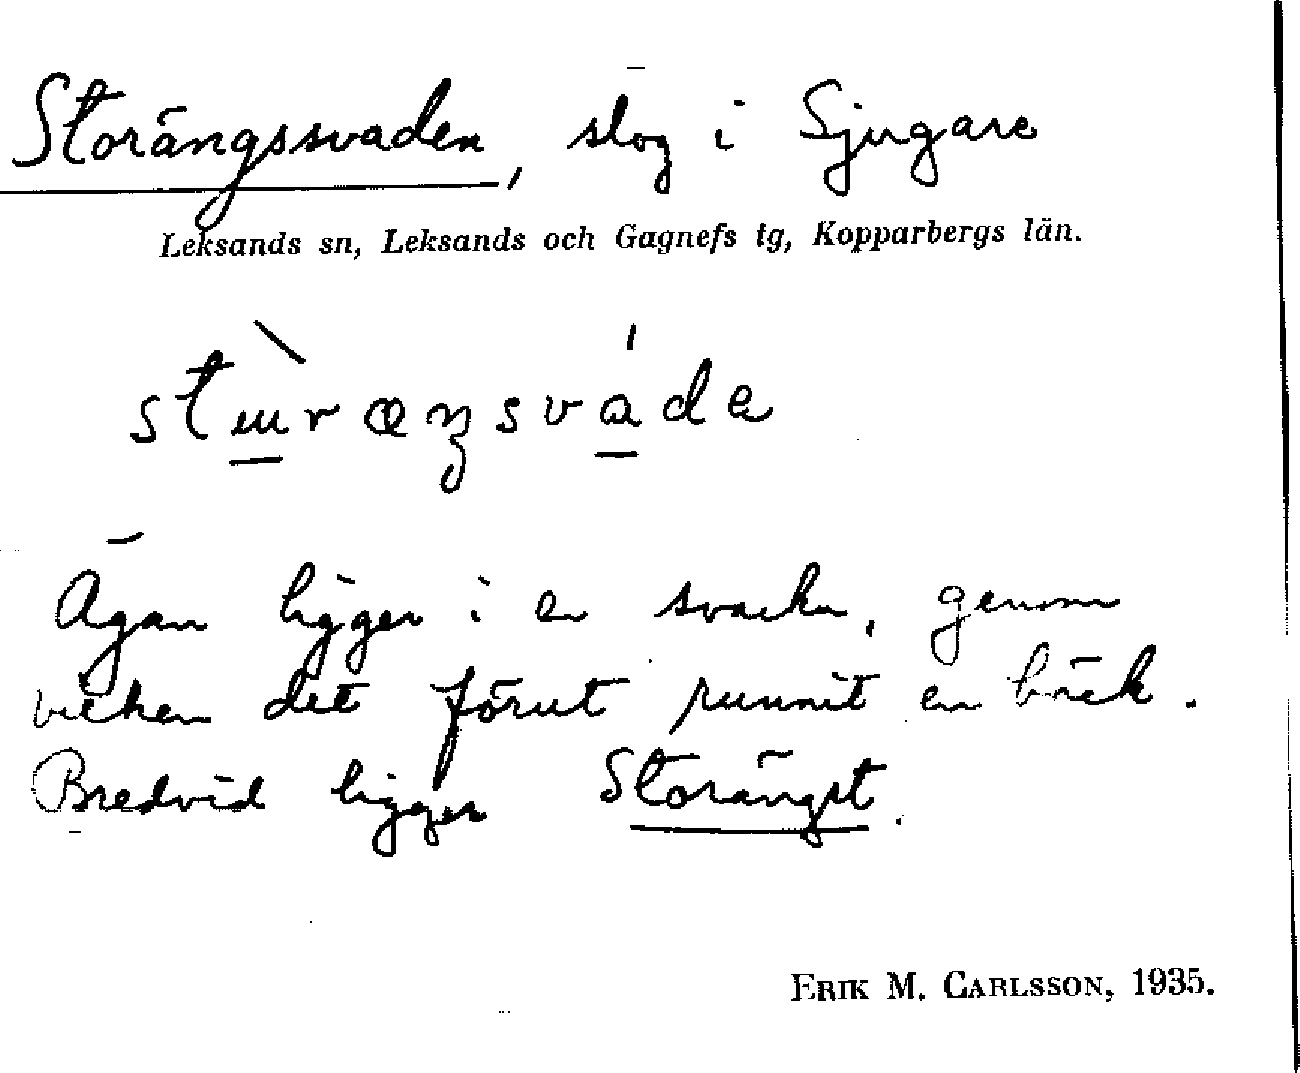 Storängssvaden, slog i Sjugare
Leksands sn, Leksands och Gagnefs tg, Kopparbergs län.
Ägan ligger i en svacka, genom
vilken det förut runnit en bäck.
Bredvid ligger Storängst.
ERIK M. CARLSSON, 1935.